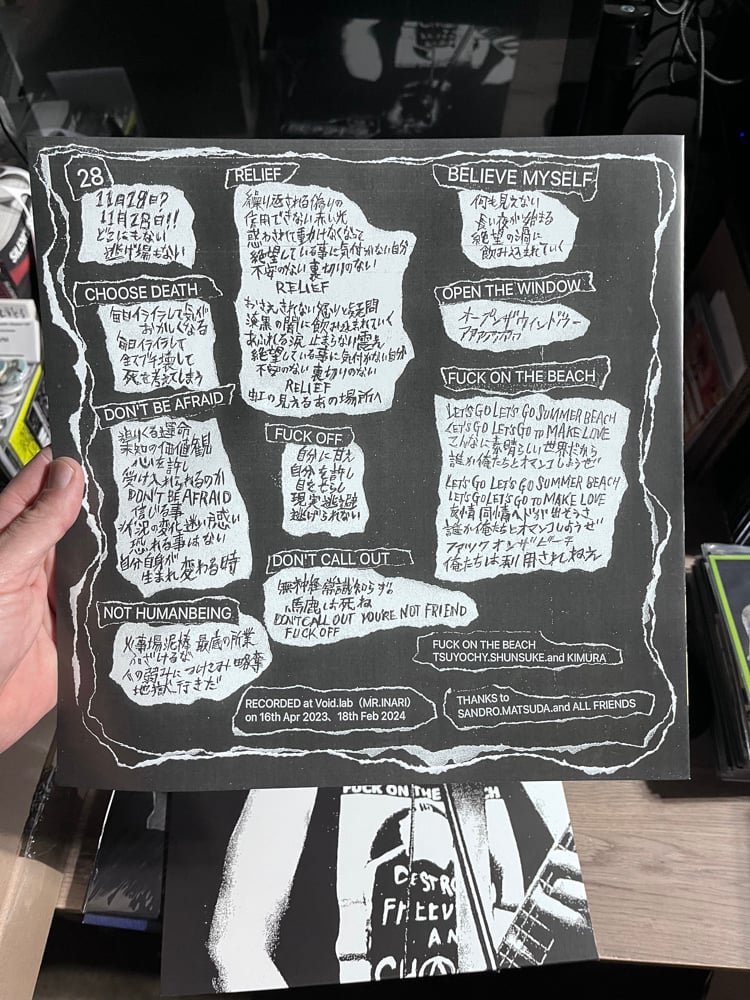 28
11月28日?
11月28日!!
どこにもない
逃げ場もない
CHOOSE DEATH
毎日イライラして気が
おかしくなる
毎日イライラして
全てぶち壊して
死を考えてしまう
DON'T BE AFRAID
迫りくる運命
未知の価値観
心を許し
受け入れられるのか
DON'T BE AFRAID
信じる事
状況の変化 迷い 惑い
恐れる事はない
自分自身が
生まれ変わる時
NOT HUMANBEING
火事場泥棒 最底の所業
ふざけるな
人の弱みにつけこみ略奪
地獄行きだ
RELIEF
繰り返される偽りの
信用できない赤い光
惑わされて動けなくなって
絶望している事に気付かない自分
不安のない裏切りのない
RELIEF
おさえきれない怒りと疑問
漆黒の闇に飲み込まれていく
あふれる涙 止まらない震え
絶望している事に気付かない自分
不安のない裏切りのない
RELIEF
虹の見えるあの場所へ
FUCK OFF
自分に甘え
自分を許し
目をそらし
現実逃避
逃げられない
DON'T CALL OUT
無神経 常識知らず
馬鹿は死ね
DON'T CALL OUT YOU'RE NOT FRIEND
FUCK OFF
BELIEVE MYSELF
何も見えない
長い夜が始まる
絶望の渦に
飲み込まれていく
OPEN THE WINDOW
オープンザウィンドウー
FUCK ON THE BEACH
LET'S GO LET'S GO SUMMER BEACH
LET'S GO LET'S GO TO MAKE LOVE
こんなに素晴らしい世界だから
誰か俺たちとオマンコしようぜ
LET'S GO LET'S GO SUMMER BEACH
LET'S GO LET'S GO TO MAKE LOVE
友情 同情 ヘドが出そうさ
誰か俺たちとオマンコしようぜ
ファックオンザビーチ
俺たちは利用されねえ
FUCK ON THE BEACH
TSUYOCHY.SHUNSUKE.and KIMURA
RECORDED at Void.lab（MR.INARI）
on 16th Apr 2023、18th Feb 2024
THANKS to
SANDRO.MATSUDA.and ALL FRIENDS
FUCK ON THE
DESTRO
AN
CHA